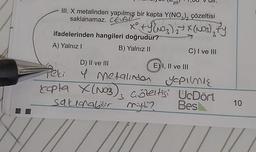 III. X metalinden yapılmış bir kapta Y(NO3)2 çözeltisi
saklanamaz.
X + Y(NO3)2 → X(NO3)2 + Y
ifadelerinden hangileri doğrudur?
A) Yalnız I
B) Yalnız II
C) I ve III
D) II ve III
E) I, II ve III
Peki Y metalinden yapılmış
kapta X(NO3)2 çözeltisi
saklanabilir miydi?
ÜcDört
Beş
10